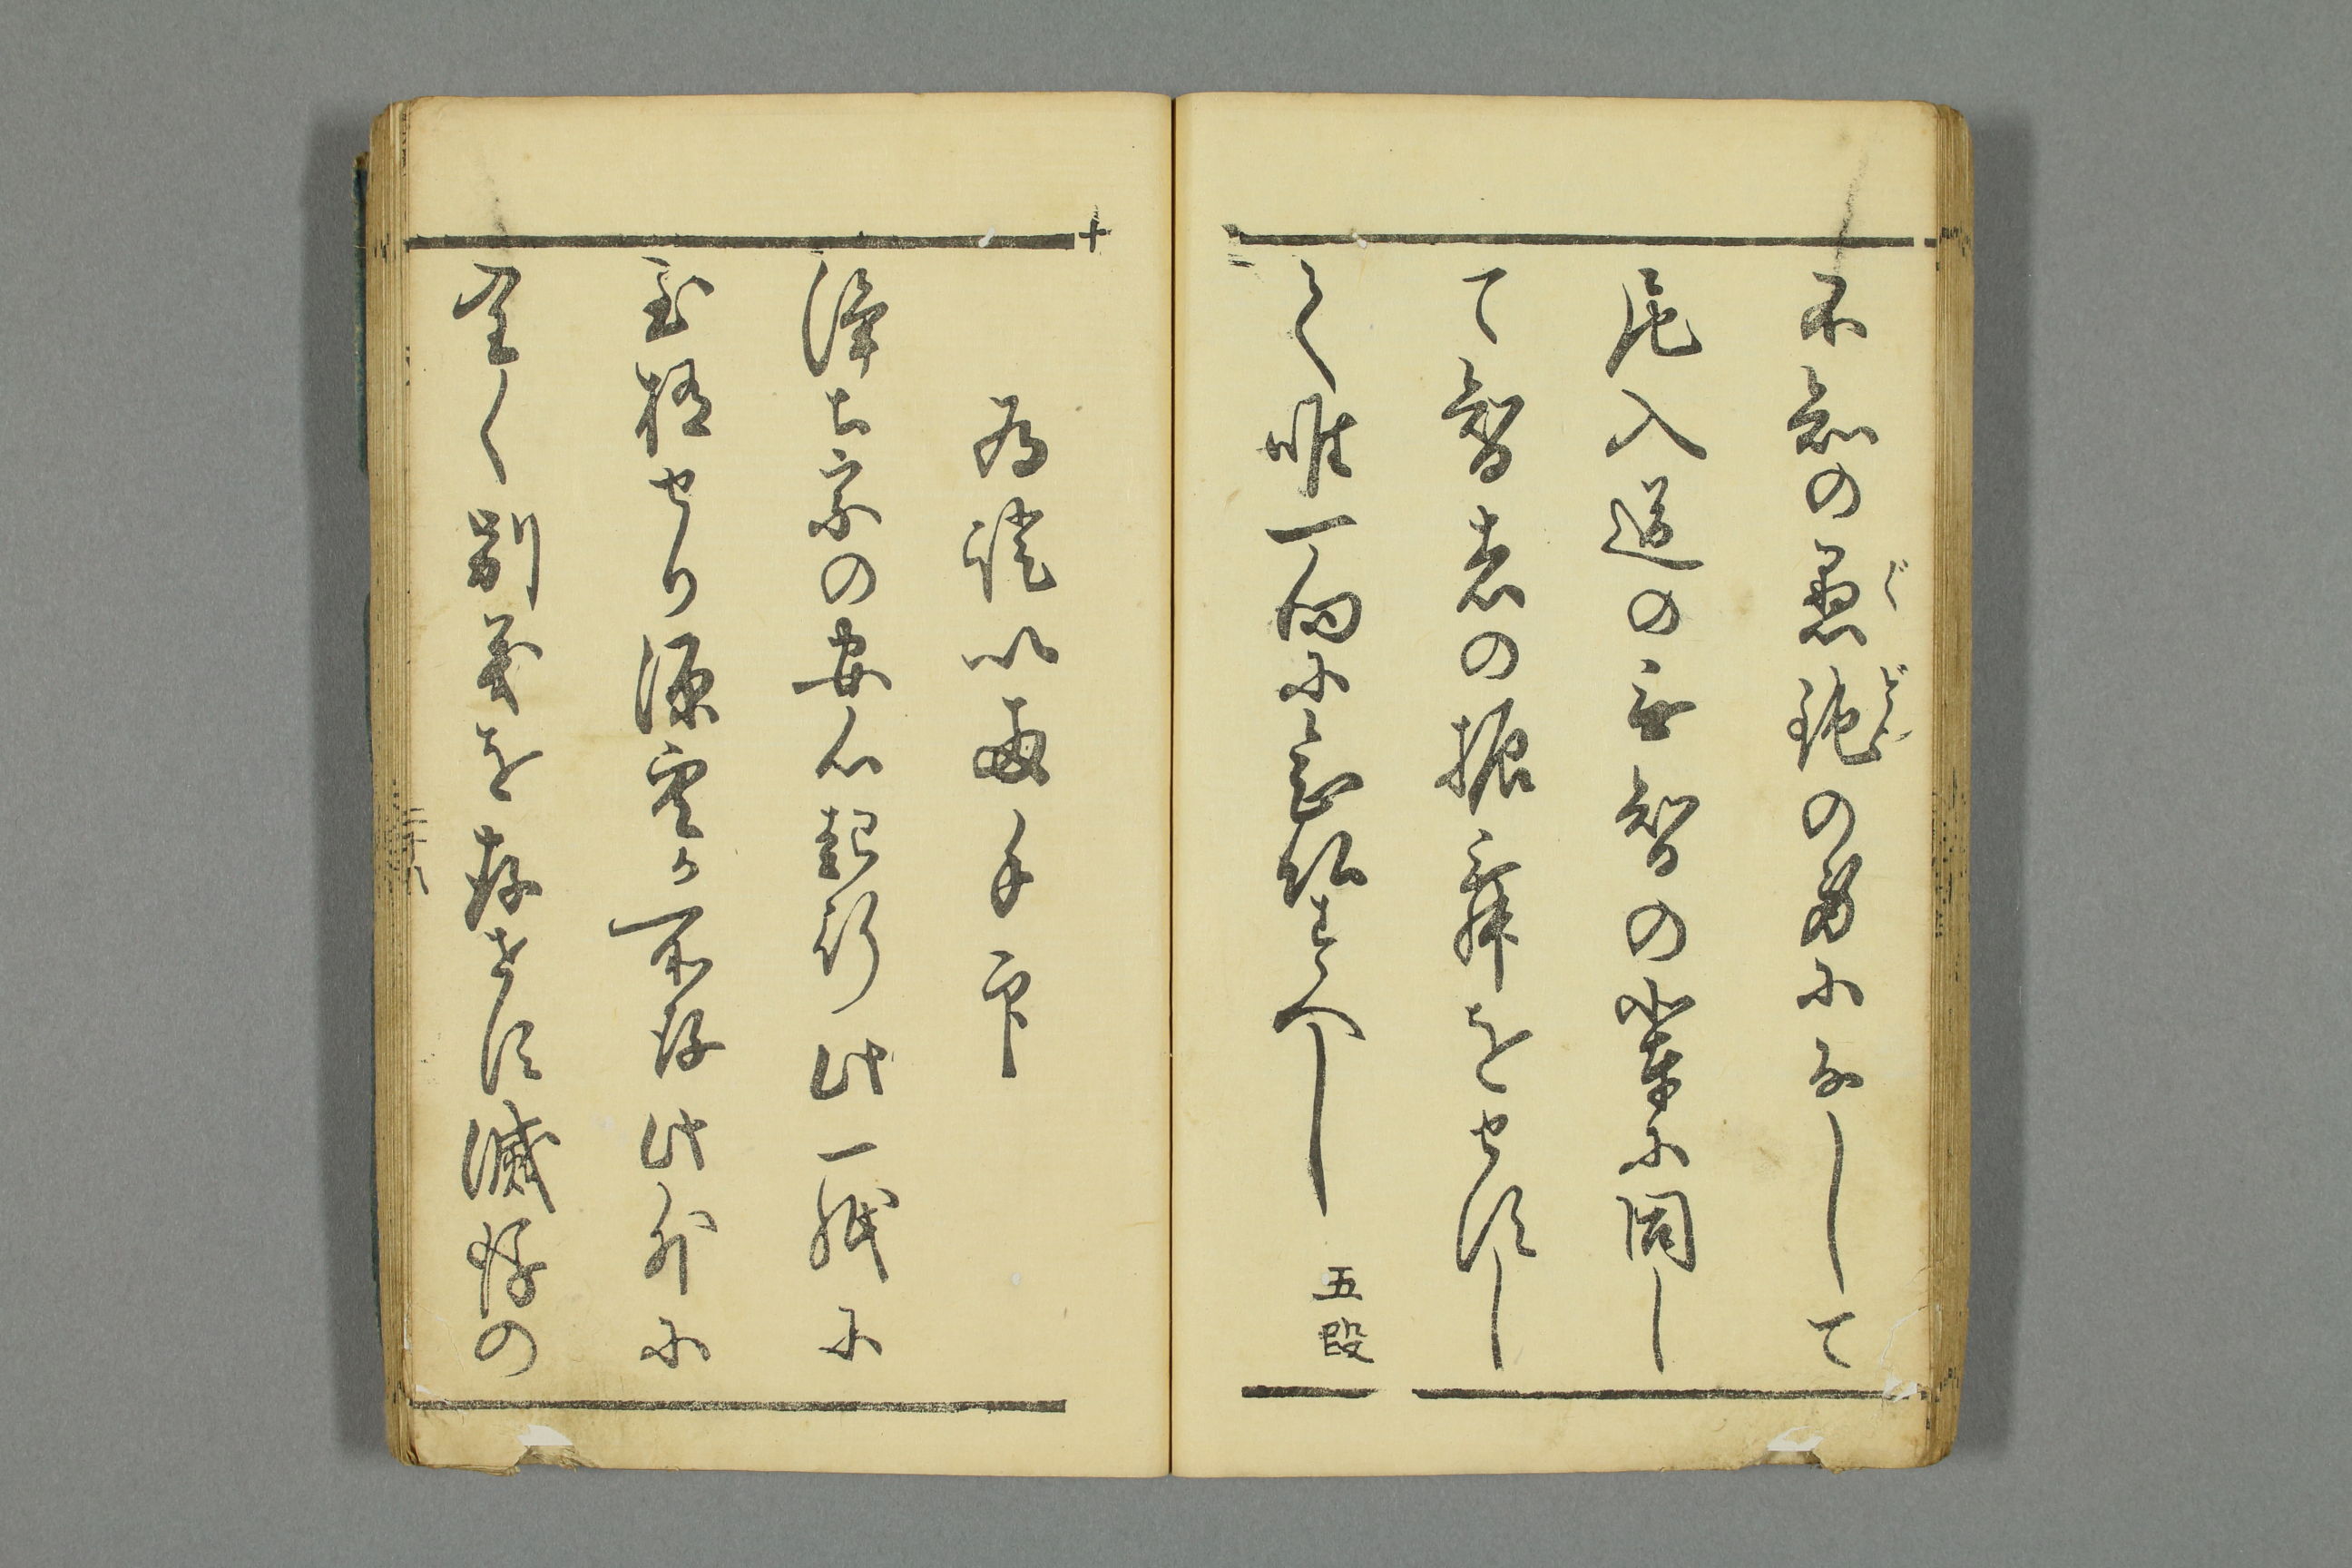 不知の愚鈍の身になして
ぐ どん
尼入道の無智の輩に同し
て智者の振舞をせすし
て唯一向に念仏すへし
五段
為證以両手印
浄土宗の安心起行此一紙に
至極せり源空か所存此外に
全く別義を存せす滅後の